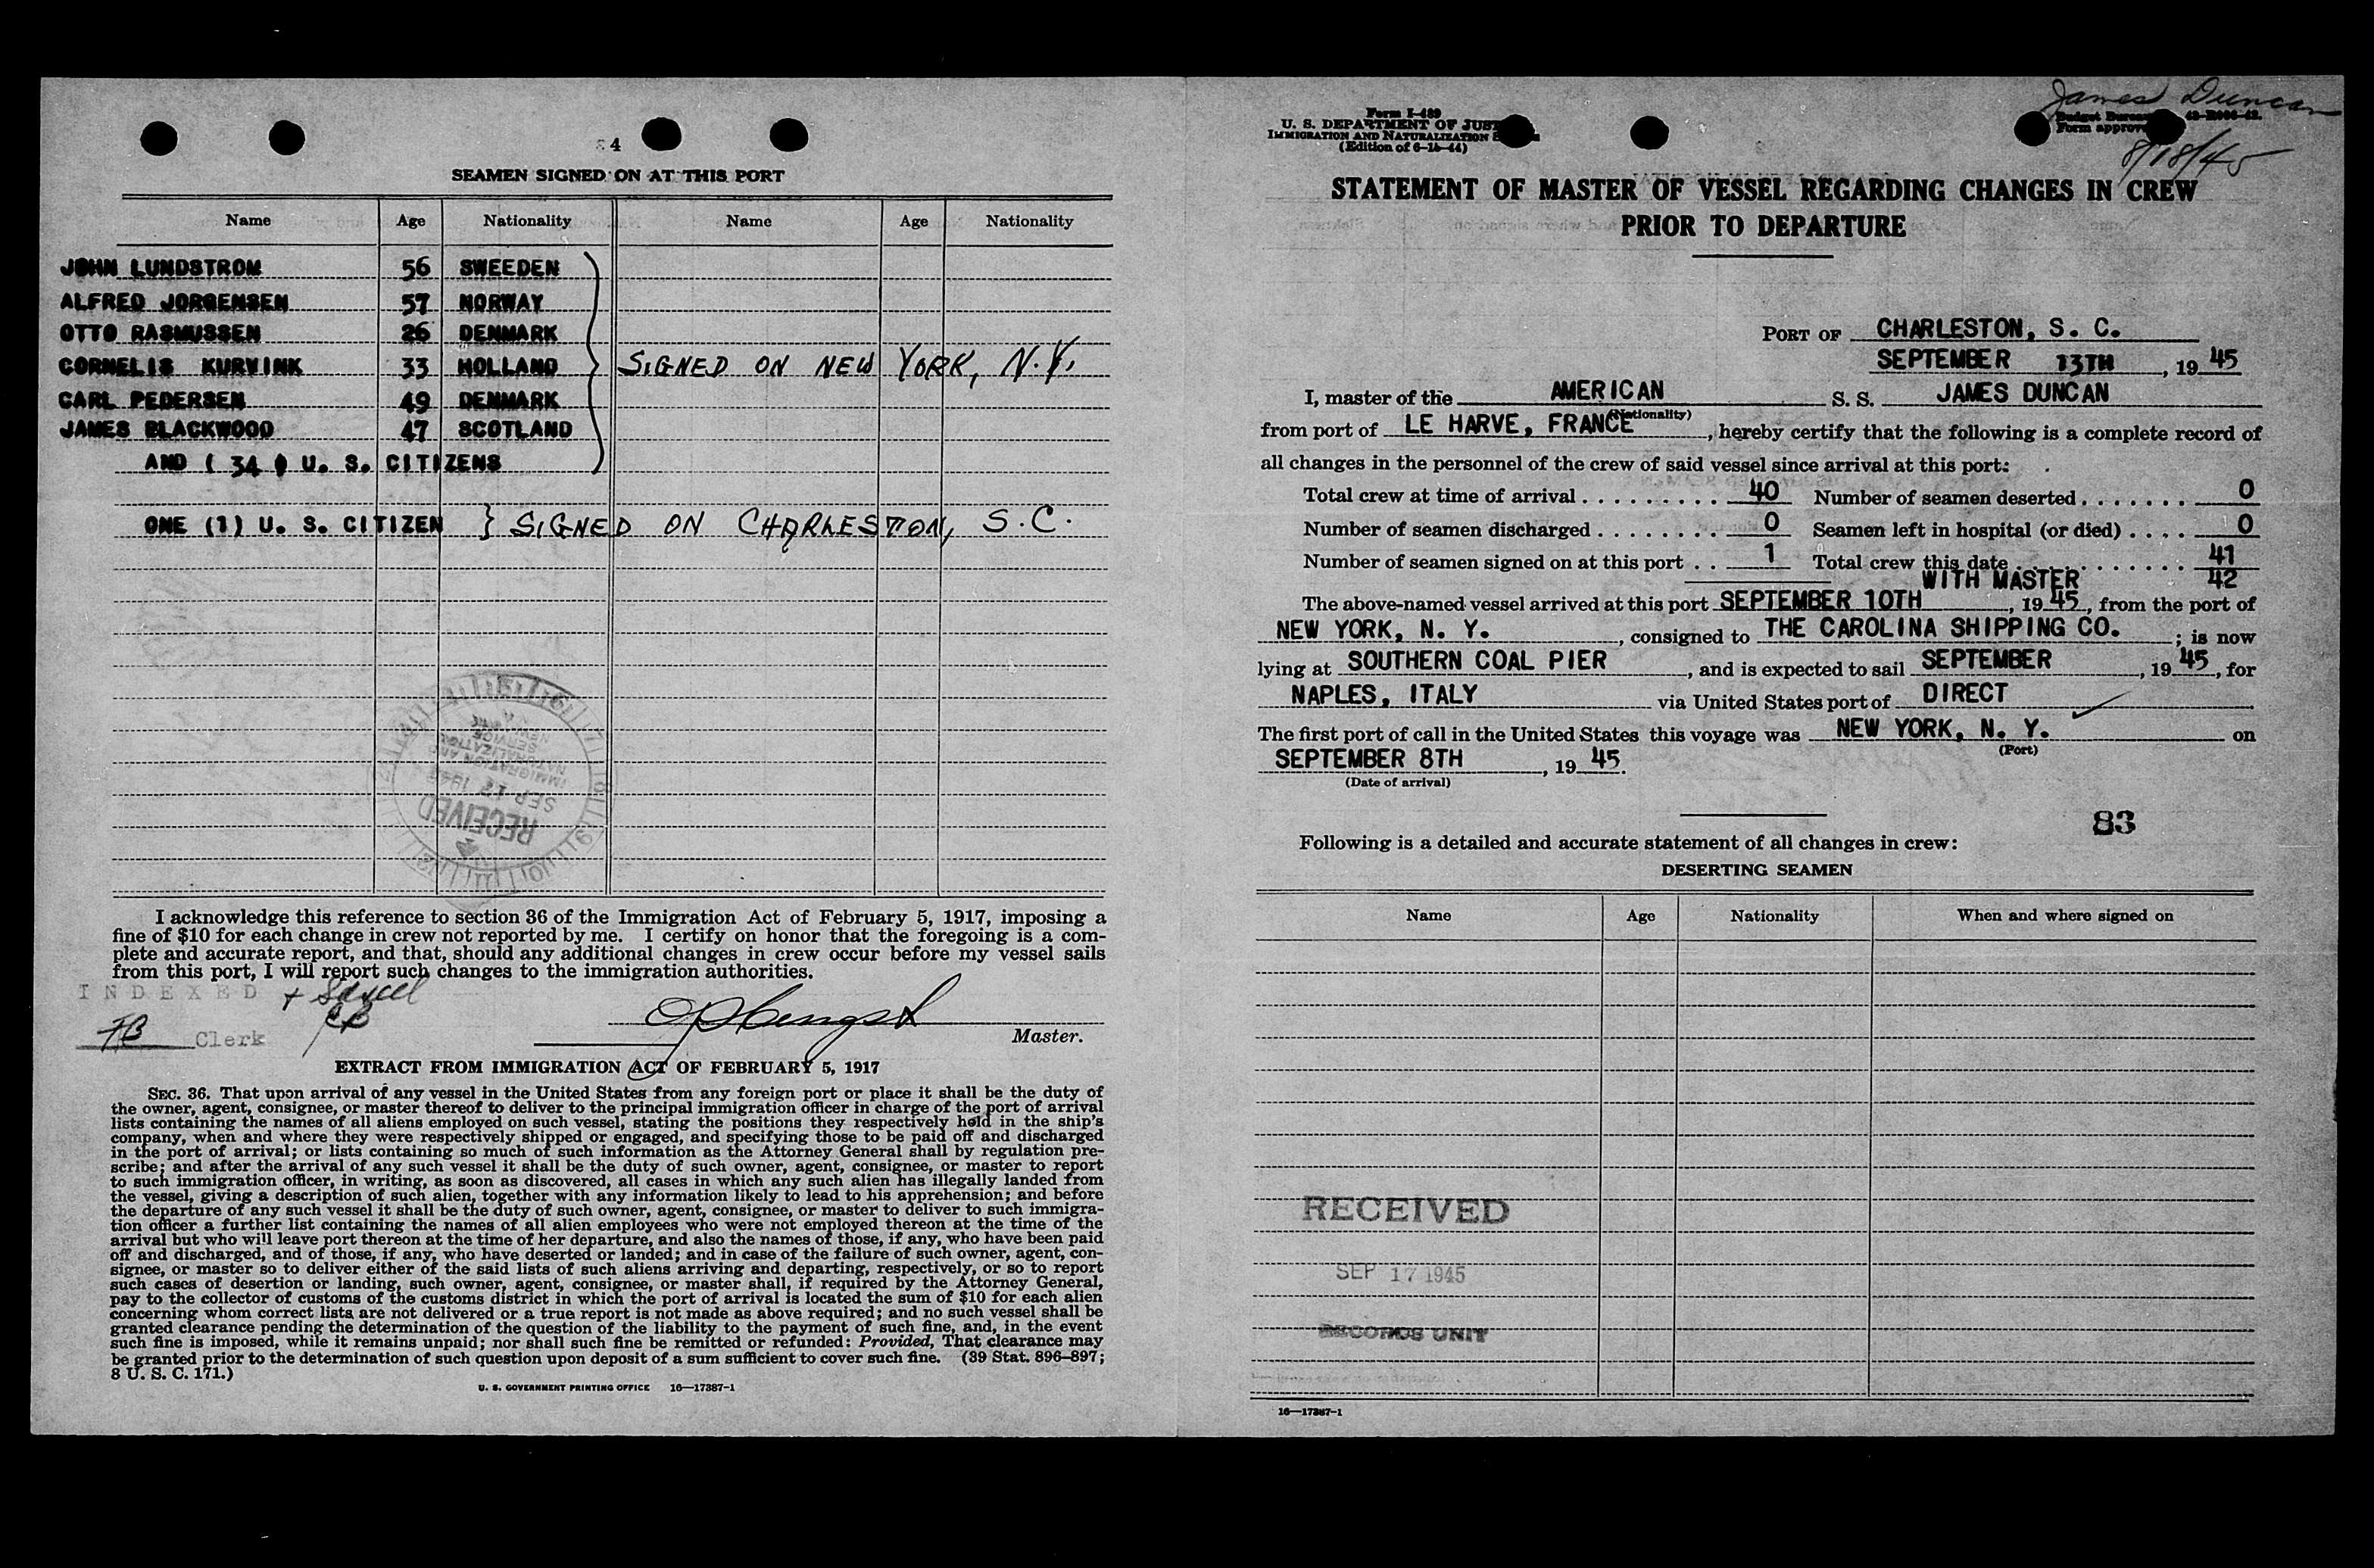 4
SEAMEN SIGNED ON AT THIS PORT
Name Age Nationality Name Age Nationality
JOHN LUNDSTROM 56 SWEEDEN
ALFRED JORGENSEN 57 NORWAY
OTTO RASMUSSEN 26 DENMARK
CORNELIS KURVINK 33 HOLLAND SIGNED ON NEW YORK, N.Y.
CARL PEDERSEN 49 DENMARK
JAMES BLACKWOOD 47 SCOTLAND
AND ( 34 ) U. S. CITIZENS
ONE (1) U. S. CITIZEN } SIGNED ON CHARLESTON, S.C.
RECEIVED
SEP 17 1945
IMMIGRATION AND
NATURALIZATION
SERVICE
I acknowledge this reference to section 36 of the Immigration Act of February 5, 1917, imposing a
fine of $10 for each change in crew not reported by me. I certify on honor that the foregoing is a com-
plete and accurate report, and that, should any additional changes in crew occur before my vessel sails
from this port, I will report such changes to the immigration authorities.
INDEXED
FB Clerk
Master.
EXTRACT FROM IMMIGRATION ACT OF FEBRUARY 5, 1917
SEC. 36. That upon arrival of any vessel in the United States from any foreign port or place it shall be the duty of
the owner, agent, consignee, or master thereof to deliver to the principal immigration officer in charge of the port of arrival
lists containing the names of all aliens employed on such vessel, stating the positions they respectively hold in the ship's
company, when and where they were respectively shipped or engaged, and specifying those to be paid off and discharged
in the port of arrival; or lists containing so much of such information as the Attorney General shall by regulation pre-
scribe; and after the arrival of any such vessel it shall be the duty of such owner, agent, consignee, or master to report
to such immigration officer, in writing, as soon as discovered, all cases in which any such alien has illegally landed from
the vessel, giving a description of such alien, together with any information likely to lead to his apprehension; and before
the departure of any such vessel it shall be the duty of such owner, agent, consignee, or master to deliver to such immigra-
tion officer a further list containing the names of all alien employees who were not employed thereon at the time of the
arrival but who will leave port thereon at the time of her departure, and also the names of those, if any, who have been paid
off and discharged, and of those, if any, who have deserted or landed; and in case of the failure of such owner, agent, con-
signee, or master so to deliver either of the said lists of such aliens arriving and departing, respectively, or so to report
such cases of desertion or landing, such owner, agent, consignee, or master shall, if required by the Attorney General,
pay to the collector of customs of the customs district in which the port of arrival is located the sum of $10 for each alien
concerning whom correct lists are not delivered or a true report is not made as above required; and no such vessel shall be
granted clearance pending the determination of the question of the liability to the payment of such fine, and, in the event
such fine is imposed, while it remains unpaid; nor shall such fine be remitted or refunded: Provided, That clearance may
be granted prior to the determination of such question upon deposit of a sum sufficient to cover such fine. (39 Stat. 896-897;
8 U. S. C. 171.)
U. S. GOVERNMENT PRINTING OFFICE 16—17387-1
James Duncan
8/18/45
Form I-489
U. S. DEPARTMENT OF JUST
IMMIGRATION AND NATURALIZATION S
(Edition of 6-15-44)
Budget Bureau 43-R006-42.
Form approve
STATEMENT OF MASTER OF VESSEL REGARDING CHANGES IN CREW
PRIOR TO DEPARTURE
PORT OF CHARLESTON, S. C.
SEPTEMBER 13TH, 1945
I, master of the AMERICAN S. S. JAMES DUNCAN
(Nationality)
from port of LE HARVE, FRANCE, hereby certify that the following is a complete record of
all changes in the personnel of the crew of said vessel since arrival at this port:
Total crew at time of arrival . . . . . . . . . 40 Number of seamen deserted . . . . . . . 0
Number of seamen discharged . . . . . . . . 0 Seamen left in hospital (or died) . . . . 0
Number of seamen signed on at this port . . 1 Total crew this date . . . . . . . . . . . 41
WITH MASTER 42
The above-named vessel arrived at this port SEPTEMBER 10TH, 1945, from the port of
NEW YORK, N. Y., consigned to THE CAROLINA SHIPPING CO.; is now
lying at SOUTHERN COAL PIER, and is expected to sail SEPTEMBER, 1945, for
NAPLES, ITALY via United States port of DIRECT
The first port of call in the United States this voyage was NEW YORK, N. Y. on
(Port)
SEPTEMBER 8TH, 1945.
(Date of arrival)
83
Following is a detailed and accurate statement of all changes in crew:
DESERTING SEAMEN
Name Age Nationality When and where signed on
RECEIVED
SEP 17 1945
RECORDS UNIT
16—17387-1